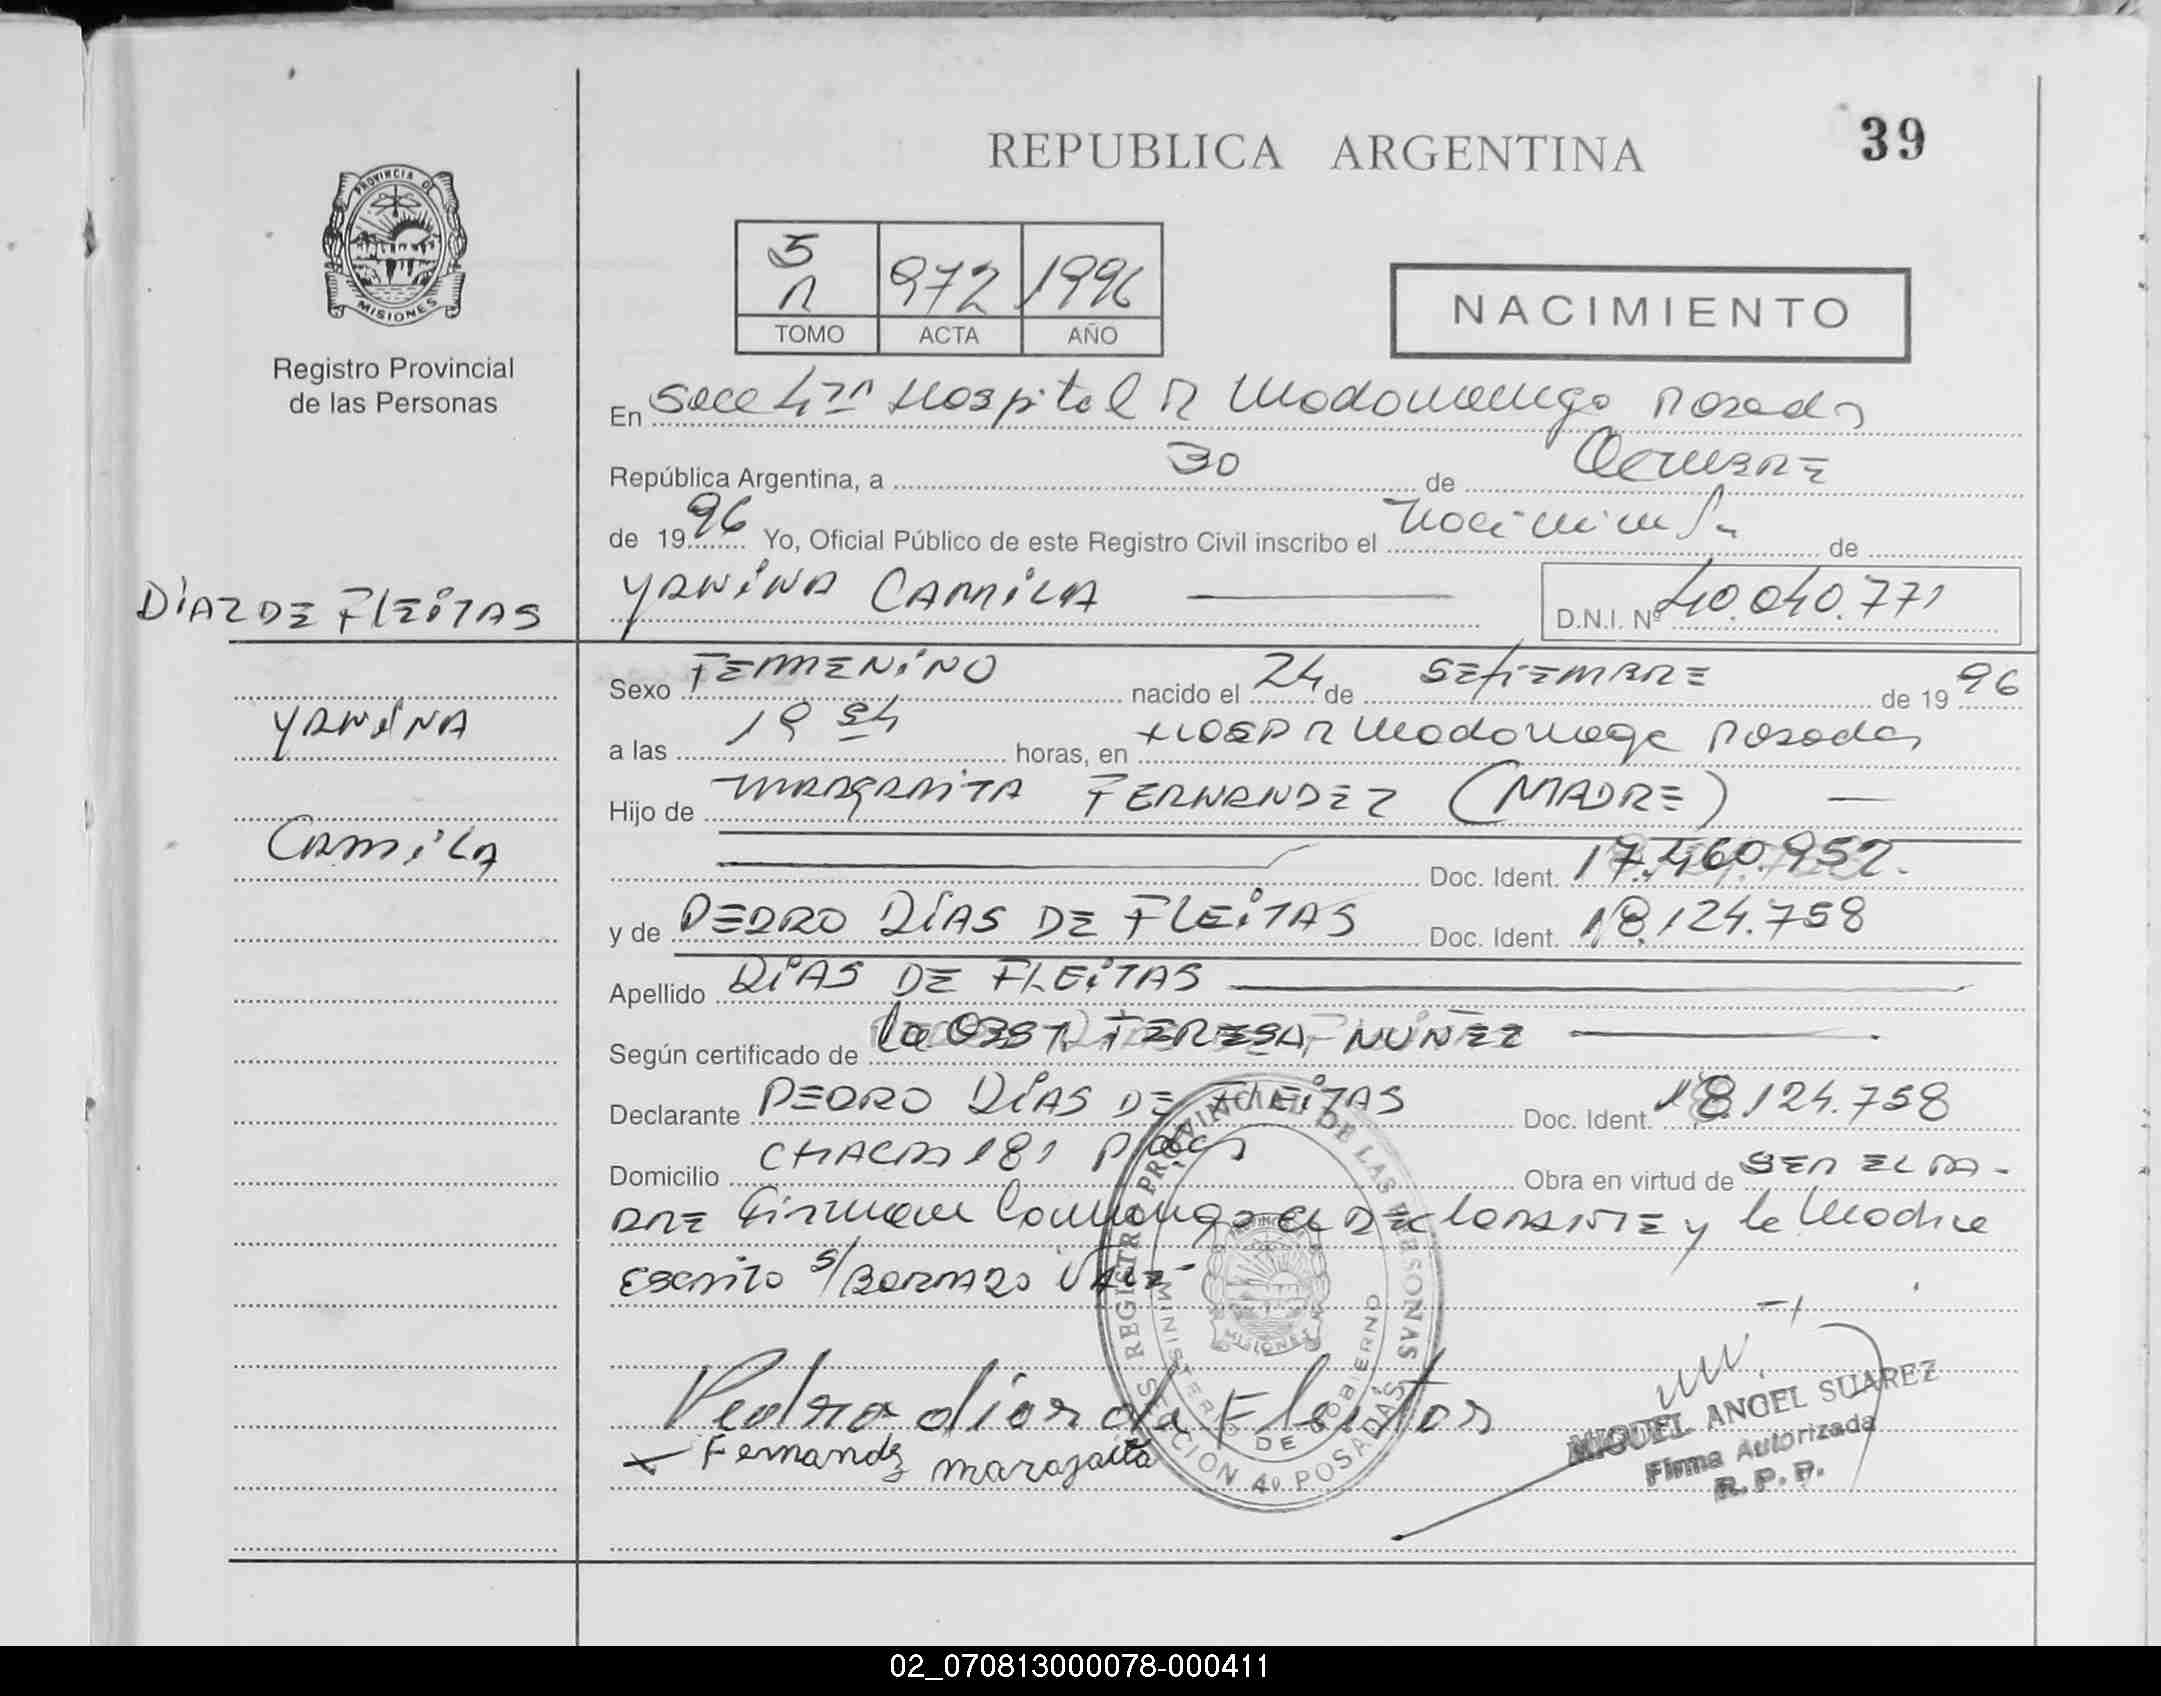 REPUBLICA ARGENTINA
39
PROVINCIA DE
MISIONES
Registro Provincial
de las Personas
5 972 1996
TOMO ACTA AÑO
NACIMIENTO
En Secc 4ta Hospital R Madariaga Posadas
República Argentina, a 30 de OCTUBRE
de 1996 Yo, Oficial Público de este Registro Civil inscribo el Nacimiento de
YANINA CAMILA D.N.I. Nº 40.040.771
DIAZ DE FLEITAS
YANINA
CAMILA
Sexo FEMENINO nacido el 24 de SETIEMBRE de 1996
a las horas, en HOSP R Madariaga Posadas
Hijo de MARGARITA FERNANDEZ (MADRE)
Doc. Ident. 17.460.952.
y de PEDRO DIAS DE FLEITAS Doc. Ident. 18.124.758
Apellido DIAS DE FLEITAS
Según certificado de la OBST. TERESA NUÑEZ
Declarante PEDRO DIAS DE FLEITAS Doc. Ident. 18.124.758
Domicilio CHACRA 181 Pdas Obra en virtud de SER EL PA-
DRE Firman Conmigo el DECLARANTE y la Madre
Escrito S/BORRADO VALE-
REGISTRO PROVINCIAL DE LAS PERSONAS
MINISTERIO DE GOBIERNO
MISIONES
SECCION 4º POSADAS
Pedro dias de Fleitas
x Fernandz margarita
MIGUEL ANGEL SUAREZ
Firma Autorizada
R.P.P.
02_070813000078-000411